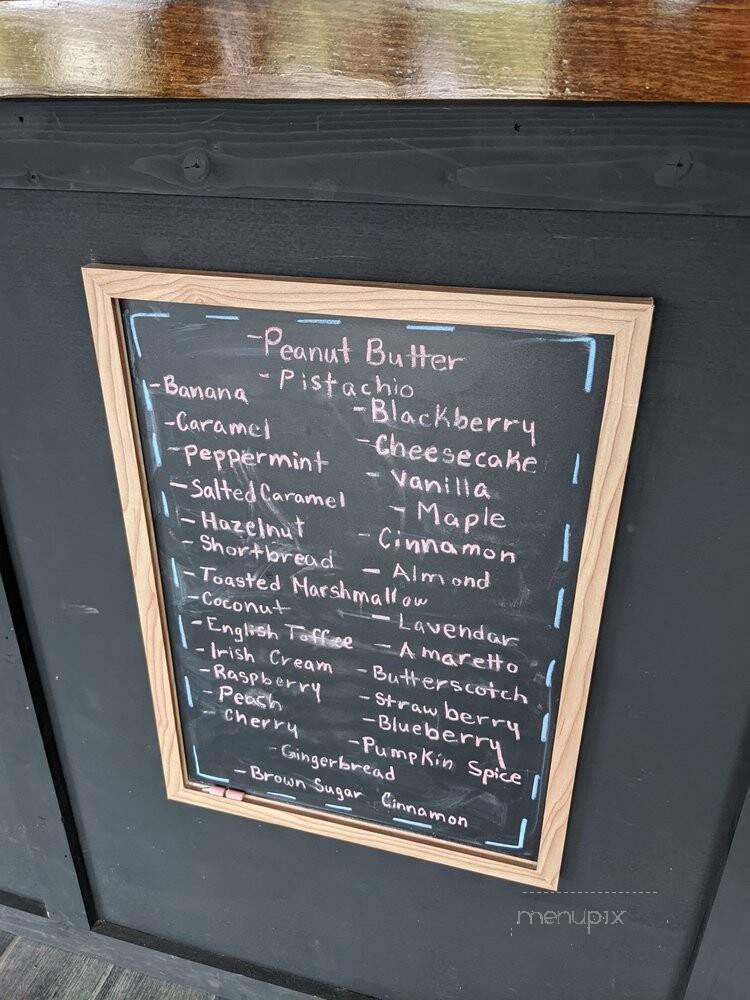 -Peanut Butter
-Pistachio
-Banana
-Caramel
-peppermint
-Salted Caramel
-Hazelnut
-Shortbread
-Toasted Marshmallow
-Coconut
-English Toffee
-Irish Cream
-Raspberry
-Peach
-Cherry
-Blackberry
-Cheesecake
-Vanilla
-Maple
-Cinnamon
-Almond
-Lavendar
-Amaretto
-Butterscotch
-Strawberry
-Blueberry
-Pumpkin Spice
-Gingerbread
-Brown Sugar Cinnamon
menupix